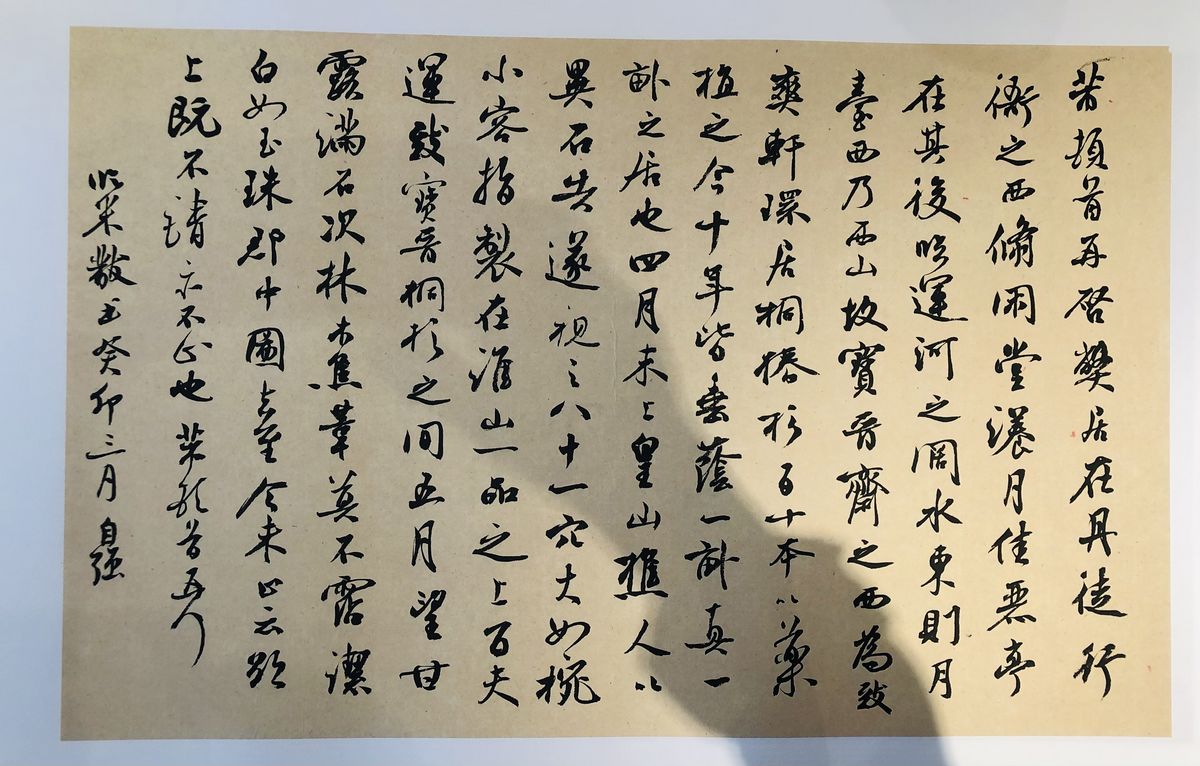 芾頓首再啓弊居在丹徒行
衙之西翛閑堂漾月佳麗亭
在其後臨運河之闊水東則月
臺西乃西山故寶晉齋之西為致
爽軒環居桐椿杉百十本以藥
植之今十年皆垂蔭一畝真一
畝之居也四月末上皇山樵人以
異石告遂視之八十一穴大如椀
小容指製在淮山一品之上百夫
運致寶晉桐杉之間五月望甘
露滿石次林木焦葦莫不霑潔
白如玉珠郡中圖去至今未止云欲
上既不請亦不止也芾頓首再拜
臨米黻書癸卯三月 自强